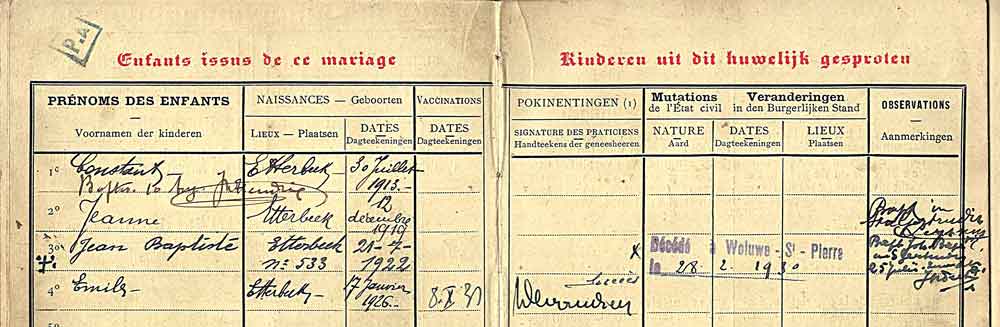 P.4
Enfants issus de ce mariage
Kinderen uit dit huwelijk gesproten
PRÉNOMS DES ENFANTS
—
Voornamen der kinderen
NAISSANCES — Geboorten
LIEUX — Plaatsen
DATES
Dagteekeningen
VACCINATIONS
DATES
Dagteekeningen
POKINENTINGEN (1)
SIGNATURE DES PRATICIENS
Handteekens der geneesheeren
Mutations — Veranderingen
de l'État civil in den Burgerlijken Stand
NATURE
Aard
DATES
Dagteekeningen
LIEUX
Plaatsen
OBSERVATIONS
—
Aanmerkingen
1° Constant Etterbeek 30 Juillet
1913.
2° Jeanne Etterbeek 12
décembre
1919
Bapt. in
3° Jean Baptiste Etterbeek 21-7-
n° 533 1922
x Décédé à Woluwe-St-Pierre
le 28 2. 1930
4° Emile Etterbeek 17 Janvier
1926 8.X 30
Succès